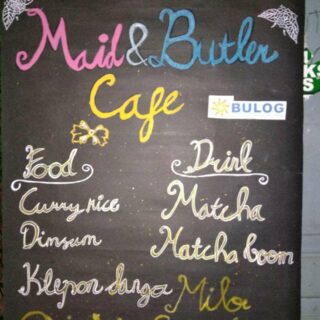 Maid & Butler
Cafe
BULOG
Food
Curry rice
Dimsum
Klepon
Drink
Matcha
Matcha boom
Milo